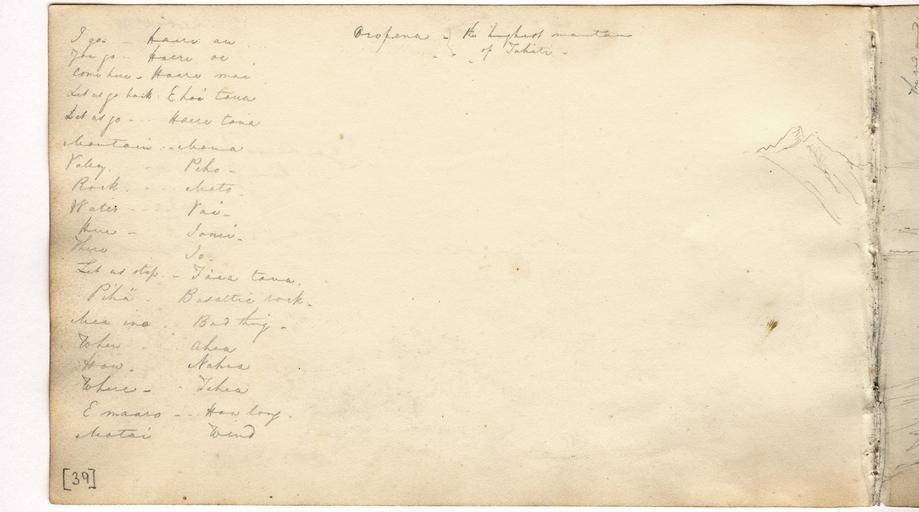 I go - Haere au
You go - Haere oe
Come here - Haere mai
Let us go back - E hoi taua
Let us go - - Haere taua
Mountain - Moua
Valley - Peho -
Rock - - Mato -
Water - - Vai -
Here - Ionei -
There Io -
Let us stop - Tiaea taua.
Piha - Basaltic rock -
Mea ino - Bad thing -
When - Ahea
How - Nahea
Where - - Tehea
E maoro - - How long -
Matai Wind
Orofena - { the highest mountain
of Tahiti -
[39]